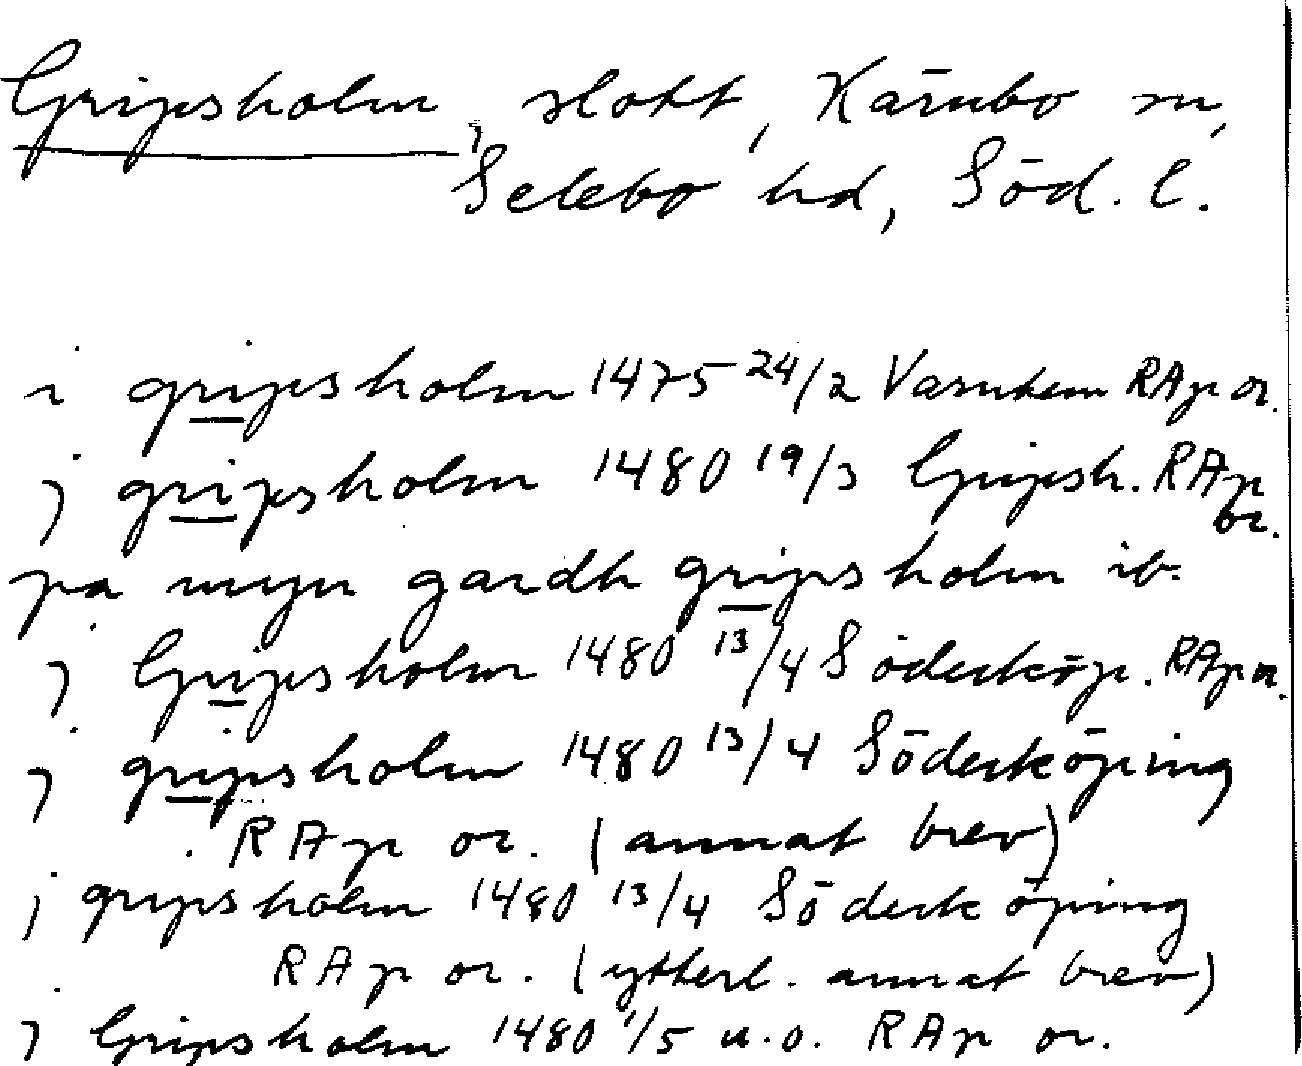 Gripsholm, slott, Kärnbo sn,
Selebo hd, Söd. l.
i gripsholm 1475 24/2 RAp or.
j gripsholm 1480 19/3 Gripsh. RAp
or.
pa mijn gardh gripsholm ib.
j Gripsholm 1480 13/4 Söderköp. RAp or.
j gripsholm 1480 13/4 Söderköping
RAp or. (annat brev)
j gripsholm 1480 13/4 Söderköping
RAp or. (ytterl. annat brev)
j Gripsholm 1480 1/5 u.o. RAp or.